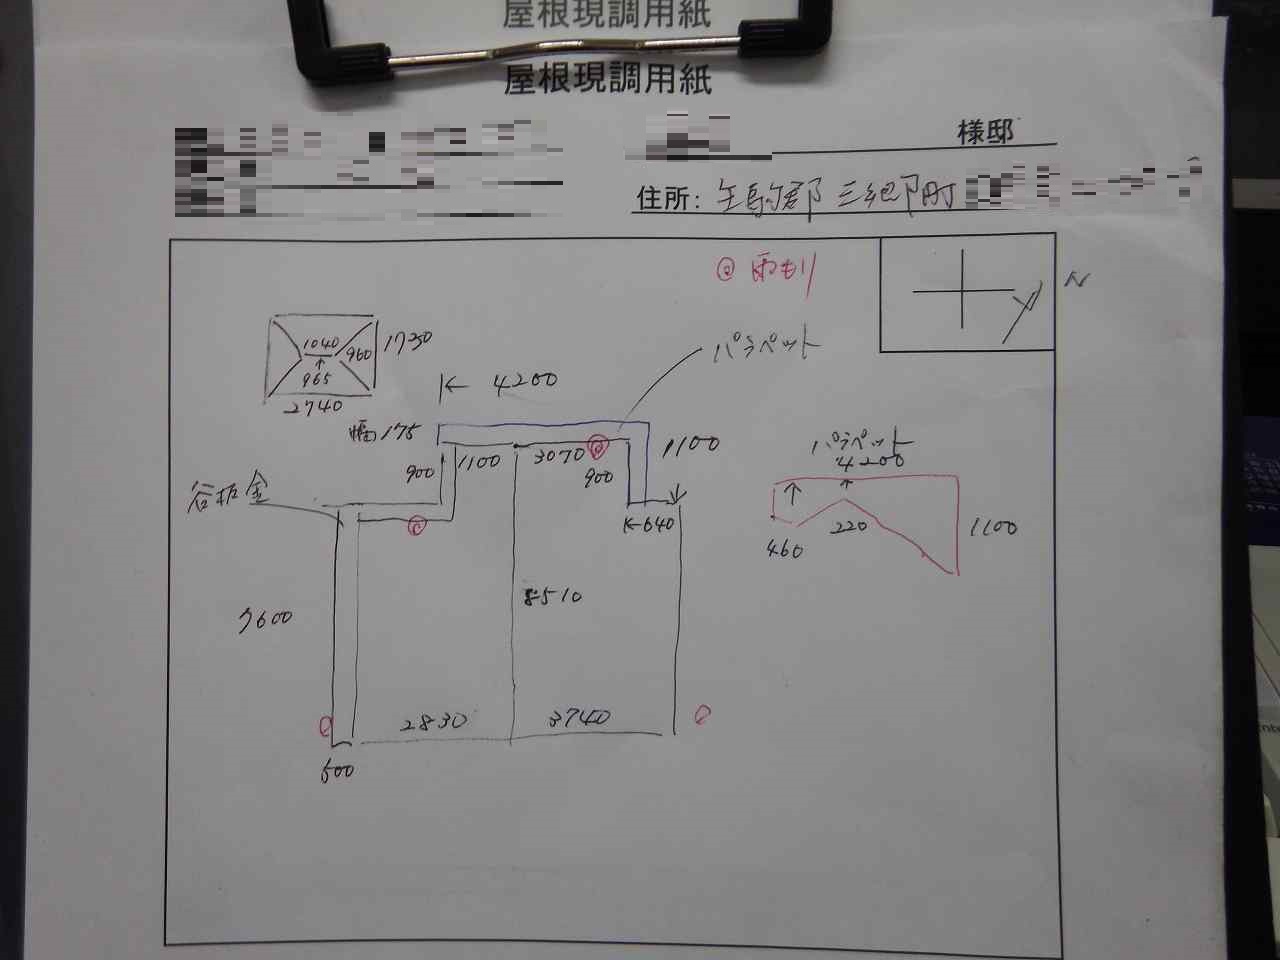 屋根現調用紙
屋根現調用紙
様邸
住所: 生駒郡 三郷町
◎ 雨もり
N
1040
960
1730
965
2740
4200
パラペット
幅175
900
1100
3070
900
1100
谷板金
640
7600
8510
2830
3740
500
パラペット
4200
220
460
1100